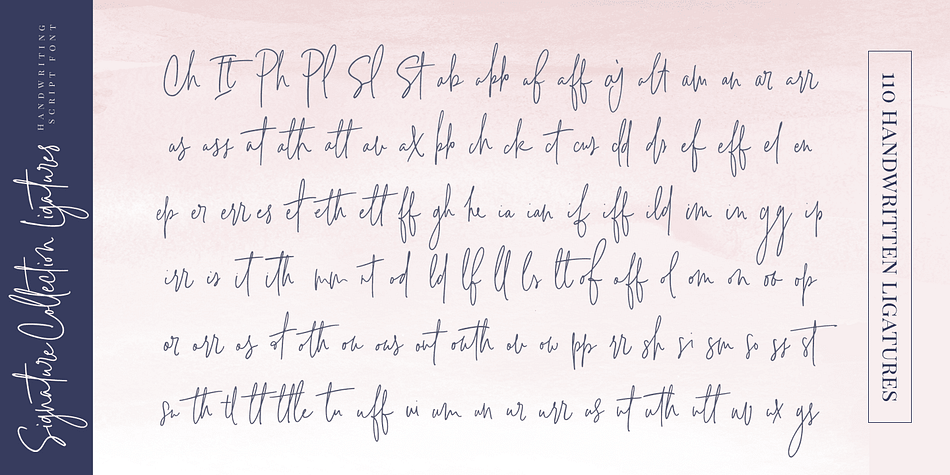 Signature Collection Ligatures
HANDWRITING
SCRIPT FONT
Ch It Ph Pl Sl St ab abb af aff aj alt am an ar arr
as ass at ath att au ax bb ch ck ct cus dd ds ef eff el en
ep er err es et eth ett ff gh he ia ian if iff ild im in gg ip
irr is it ith mm nt od ld lf ll ls lt of off ol om on oo op
or orr os ot oth ou ous out outh ov ow pp rr sh si sm so ss st
su th tl tt ttle tu uff ui um un ur urr us ut uth utt uv ux gs
110 HANDWRITTEN LIGATURES